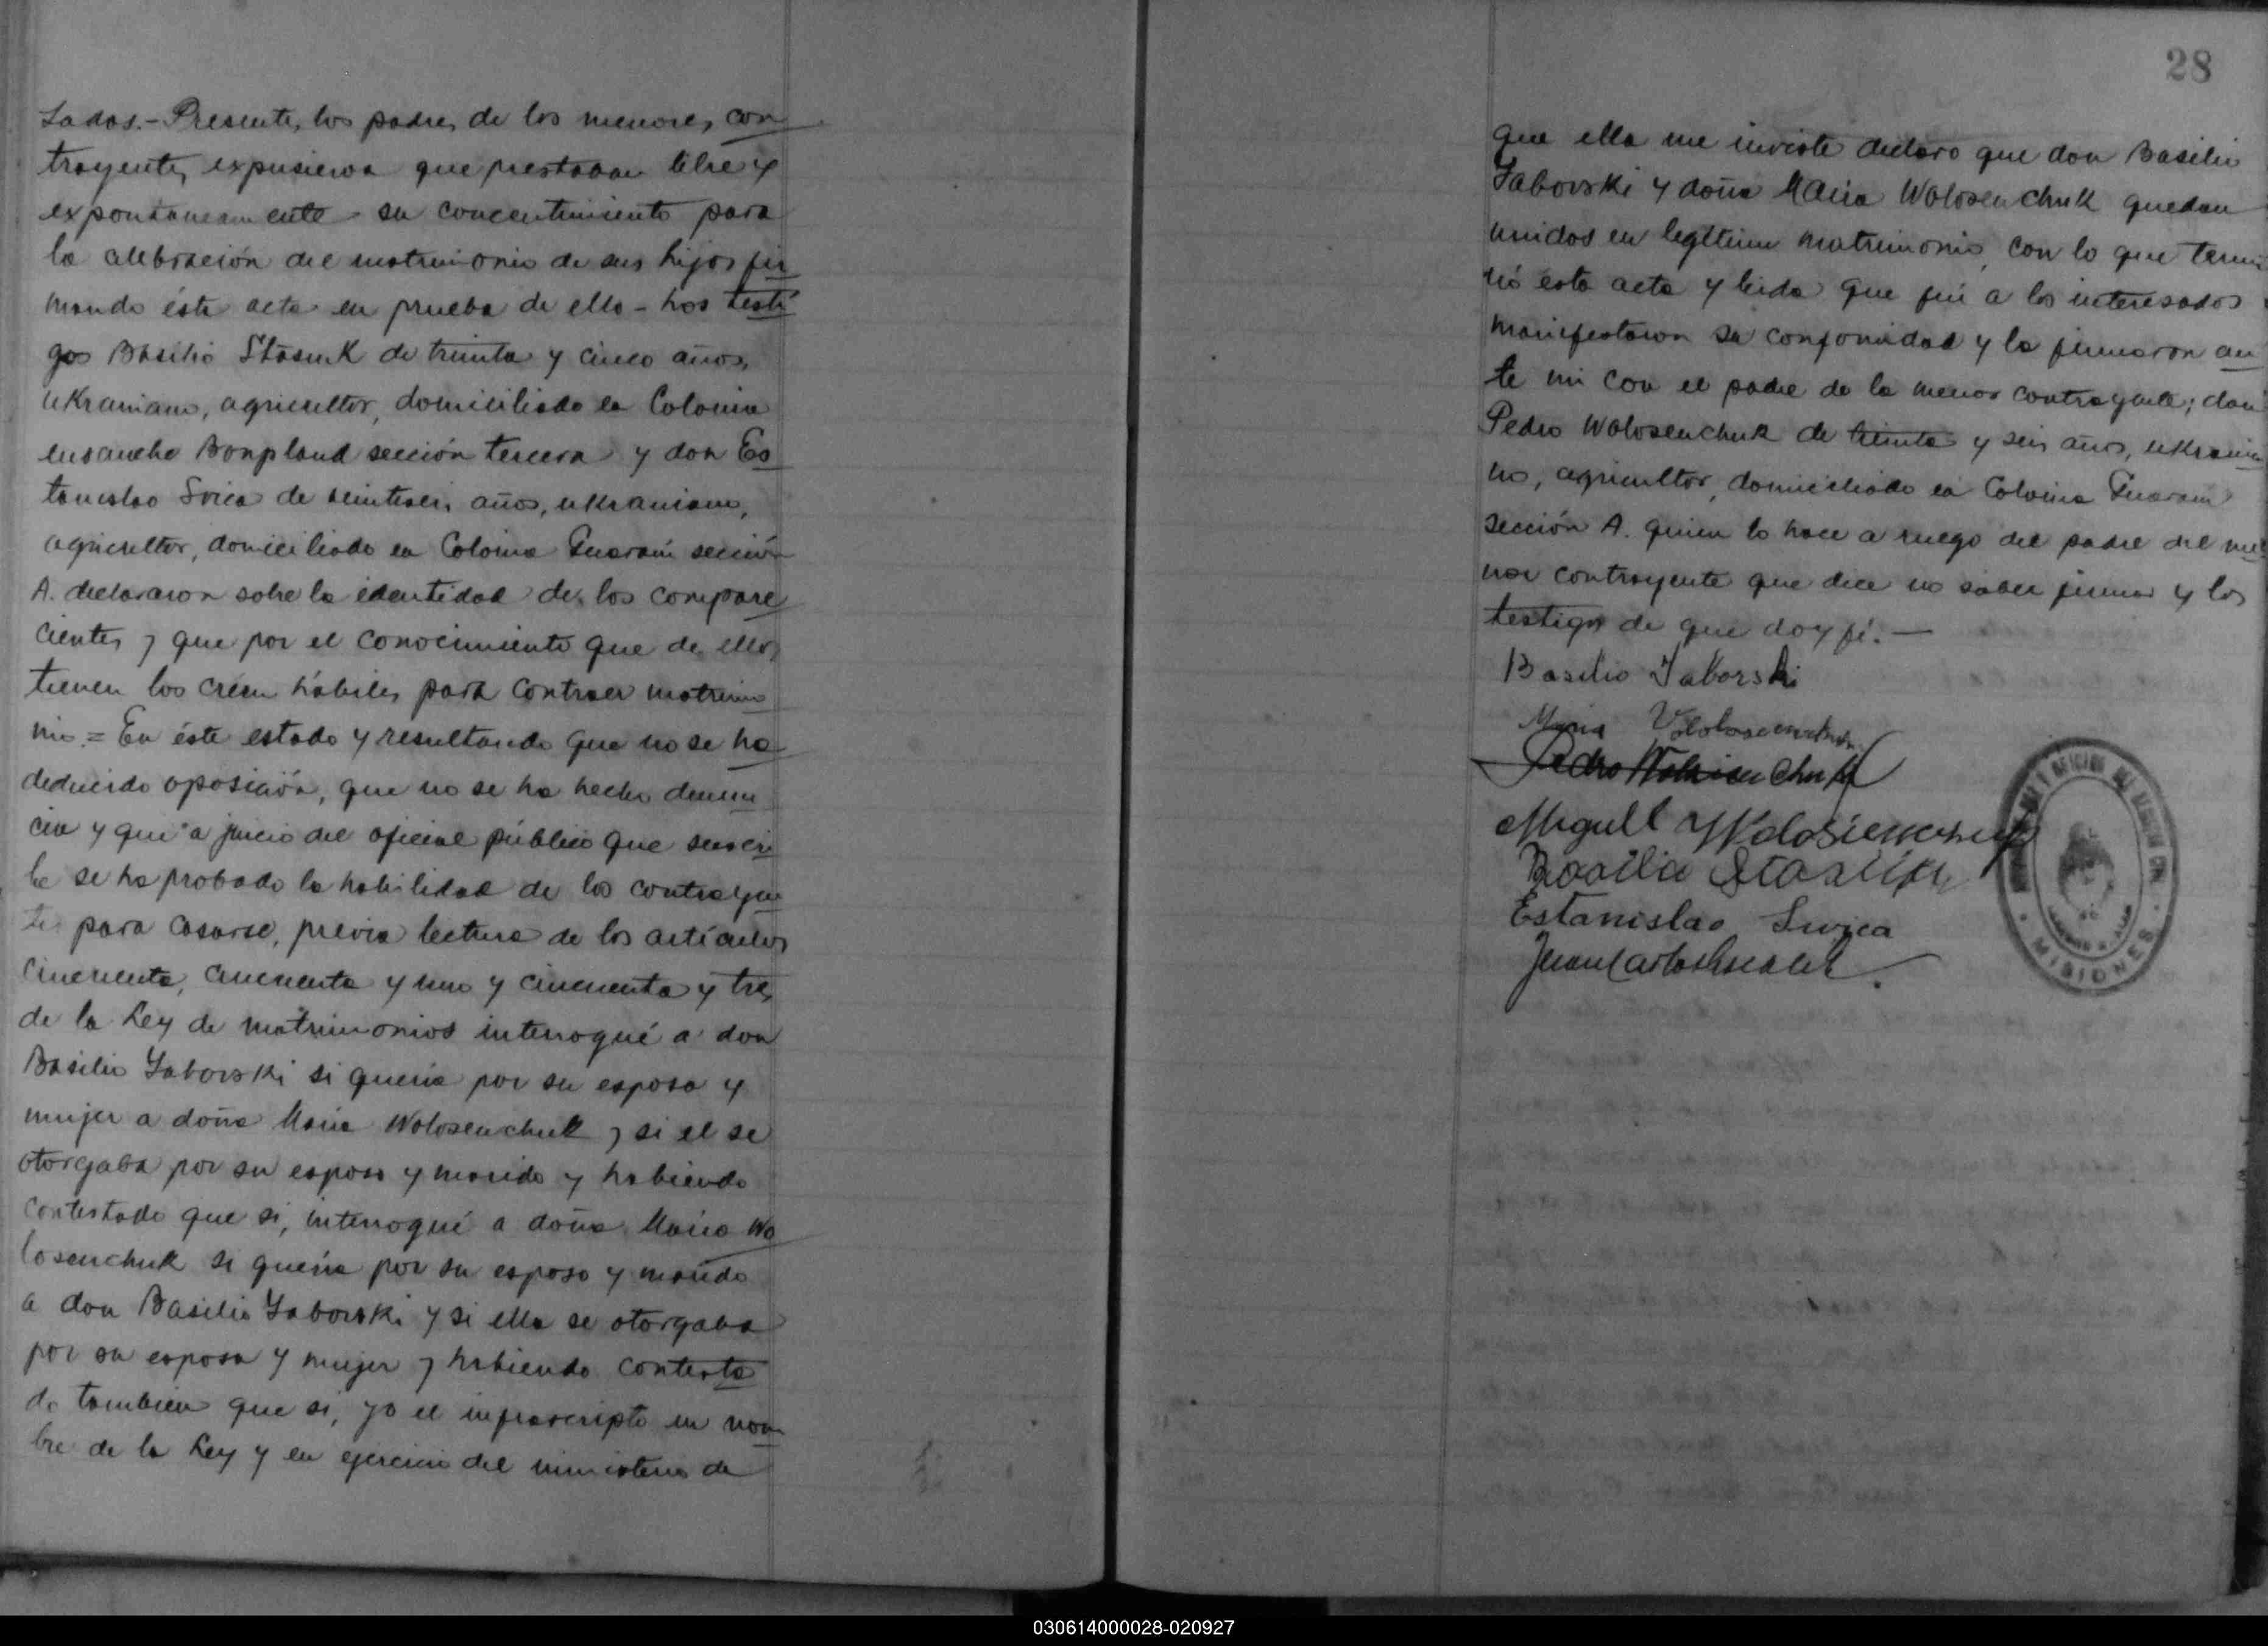 tados.- Presentes los padres de los menores con
trayentes expusieron que prestaban libre y
expontaneamente su concentimiento para
la celebración del matrimonio de sus hijos fir
mando ésta acta en prueba de ello - Los testi
gos Basilio Stasuk de treinta y cinco años,
ukraniano, agricultor, domiciliado en Colonia
ensanche Bonpland sección tercera y don Es
tanislao Srica de veintiseis años, ukraniano,
agricultor, domiciliado en Colonia Guaraní sección
A. declararon sobre la identidad de los compare
cientes y que por el conocimiento que de ellos
tienen los créen hábiles para contraer matrimo
nio.= En éste estado y resultando que no se ha
deducido oposición, que no se ha hecho denun
cia y que a juicio del oficial público que suscri
be se ha probado la habilidad de los contrayen
tes para casarse, previa lectura de los artículos
cincuenta, cincuenta y uno y cincuenta y tres
de la Ley de matrimonios interrogué a don
Basilio Yaborski si quería por su esposa y
mujer a doña María Wolosenchuk y si el se
otorgaba por su esposo y marido y habiendo
contestado que si, interrogué a doña María Wo
losenchuk si quería por su esposo y marido
a don Basilio Yaborski y si ella se otorgaba
por su esposa y mujer y habiendo contesta
do tambien que si, yo el infrascripto en nom
bre de la Ley y en ejercicio del ministerio de
28
que ella me inviste declaro que don Basilio
Yaborski y doña María Wolosenchuk quedan
unidos en legítimo matrimonio, con lo que termi
nó esta acta y leida que fué a los interesados
manifestaron su conformidad y la firmaron an
te mi con el padre de la menor contrayente; don
Pedro Wolosenchuk de treinta y seis años, ukrania
no, agricultor, domiciliado en Colonia Guaraní
sección A. quien lo hace a ruego del padre del me
nor contrayente que dice no saber firmar y los
testigos de que doy fé.—
Basilio Jaborski
Maria
Pedro Wolosenchuk
Migull
Basilio
Estanislao Swica
Juan Carlos
MISIONES
030614000028-020927